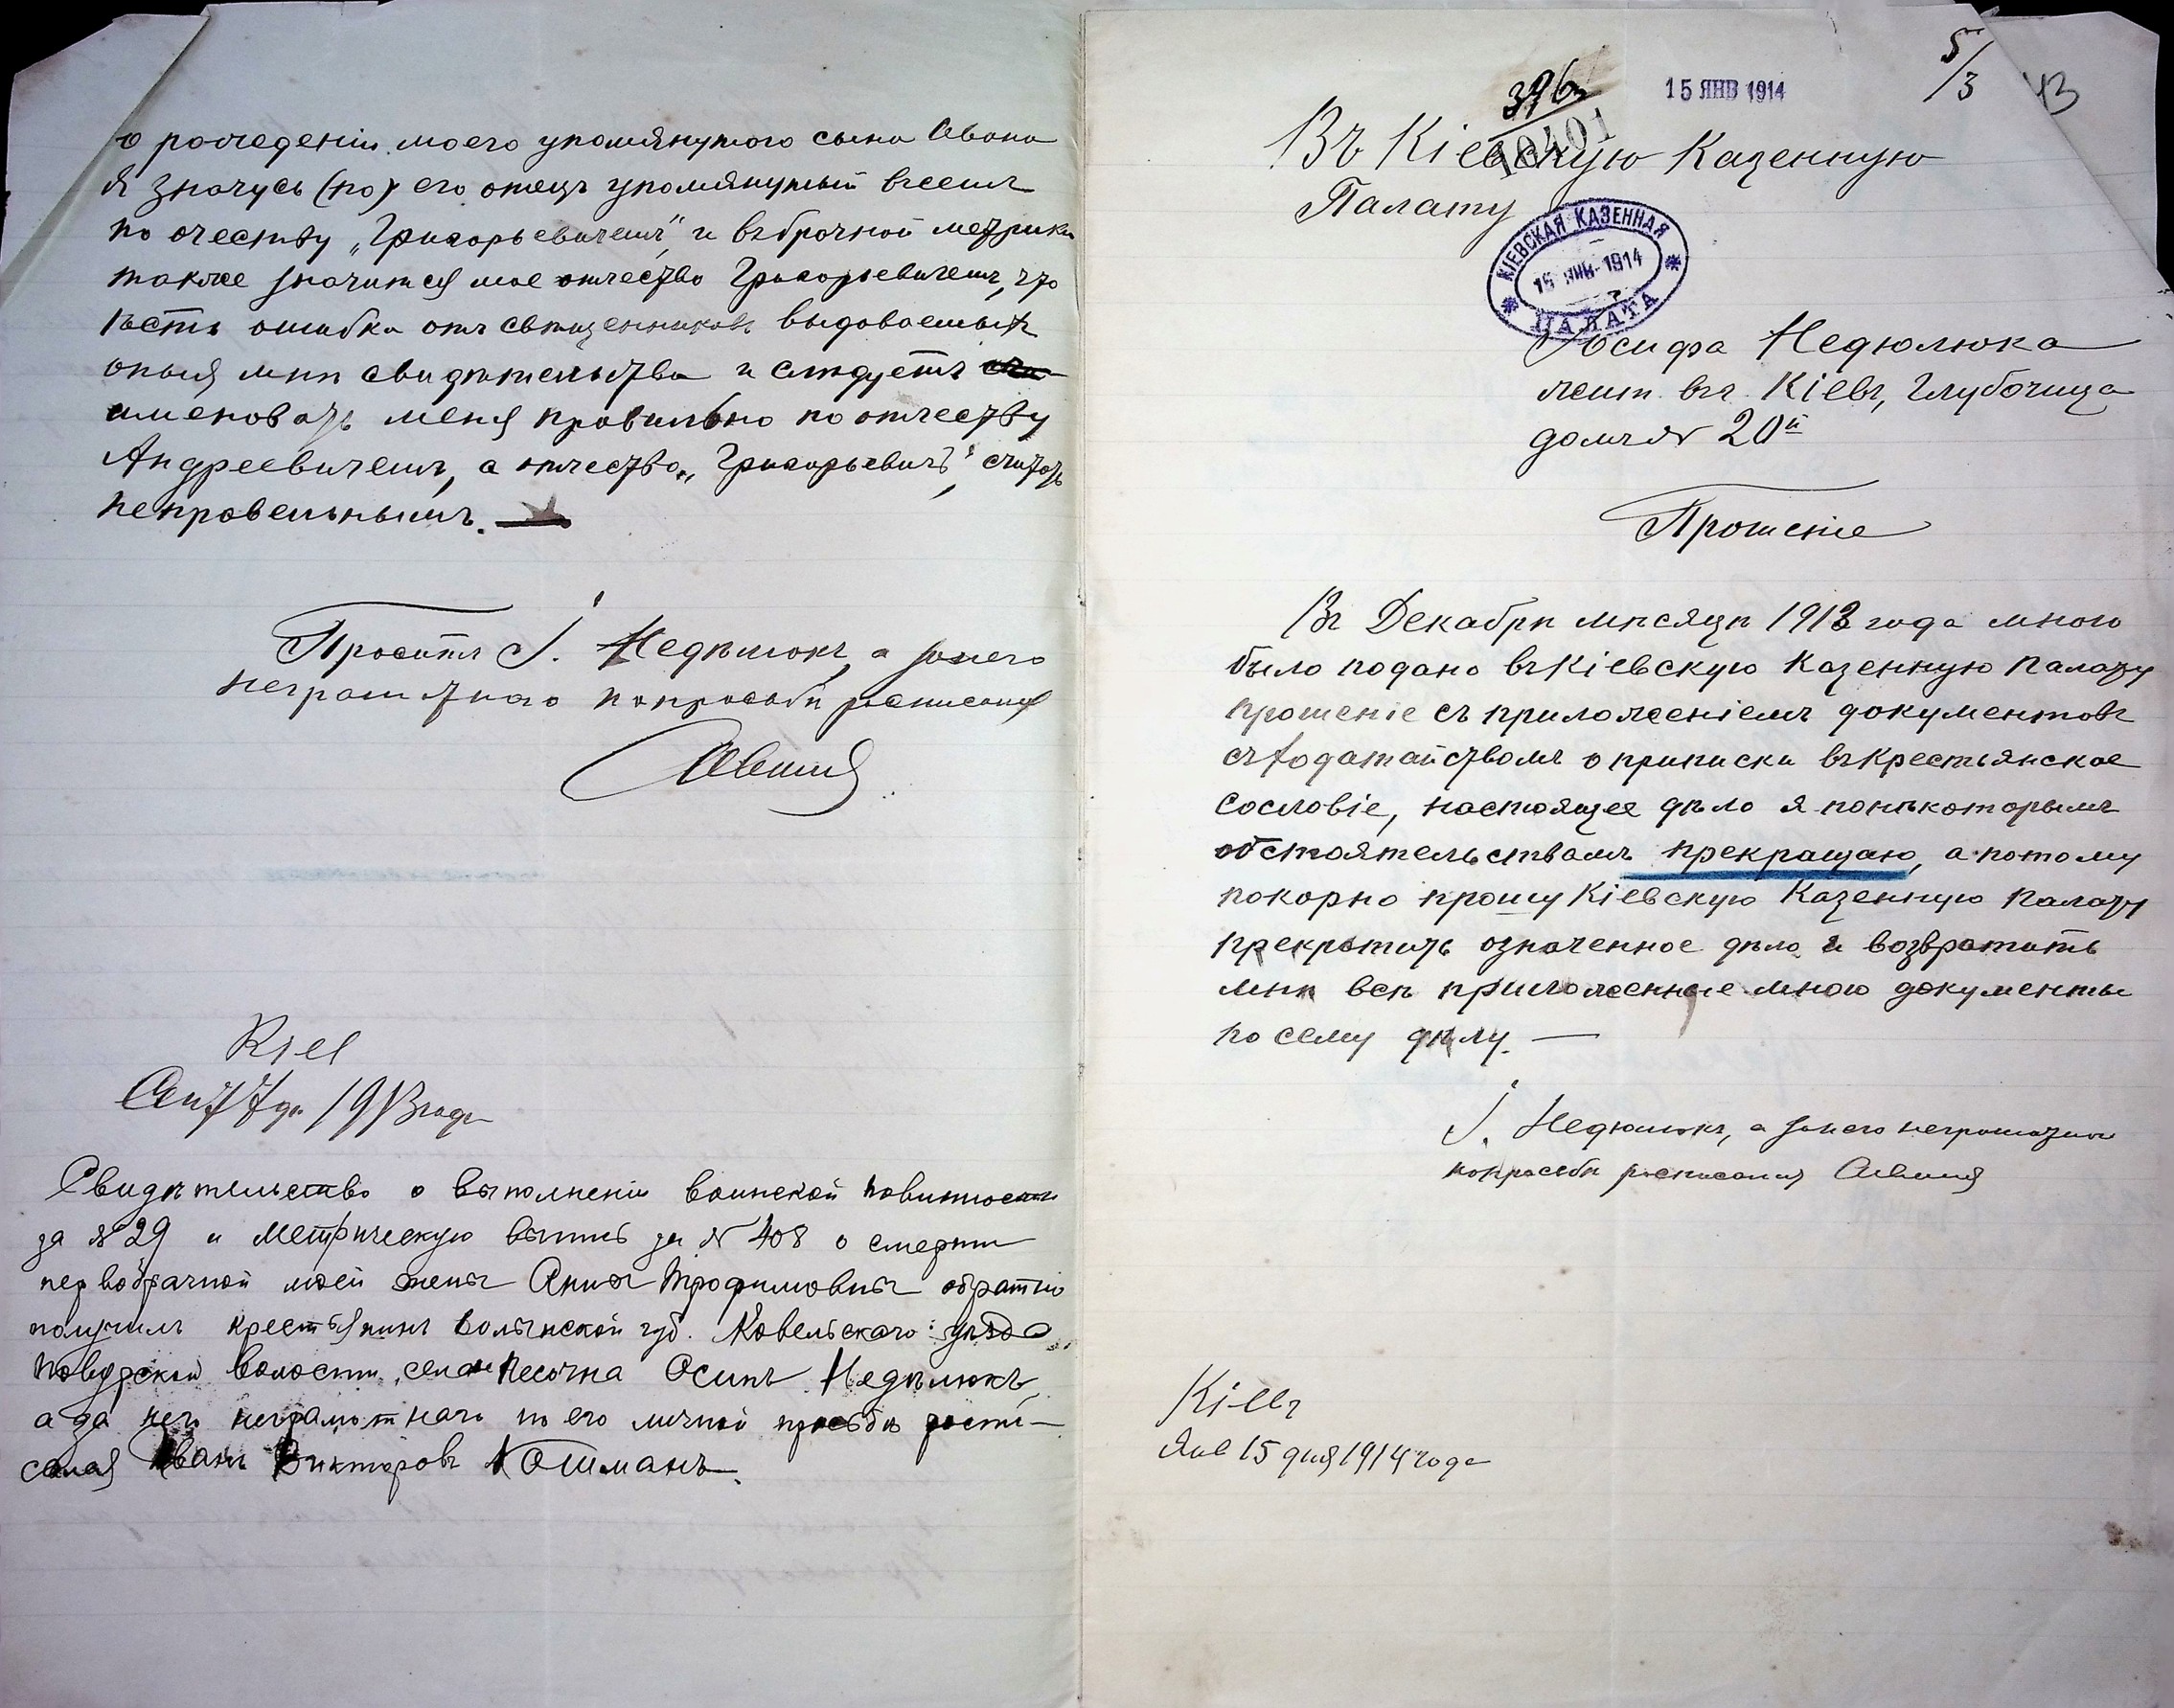 о рожденіи моего упомянутого сына Ивана
я значусь (по) его отецъ упомянутый
по очеству „Григорьевичемъ" и въ брачной метрики
также значится мое отчество Григорьевичемъ, что
есть ошибка отъ священниковъ выдаваемыхъ
оныя мнѣ свидѣтельства и слѣдуетъ
именовать меня правильно по отчеству
Андреевичемъ, а отчество „Григорьевичъ" считать
неправельнымъ.
Проситъ І. Недѣлюкъ, а за него
неграмотнаго по просьбѣ росписался
Кіев
1913 года
Свидѣтельство о выполненіи воинской повинности
за № 29 и метрическую выпись за № 408 о смерти
первобрачной моей жены Анны Трофимовны обратно
получилъ крестьянинъ Волынской губ. Ковельскаго уѣзда
волости, села Песочна Осипъ Недѣлюкъ,
а за него неграмотнаго по его личной просьбѣ роспи-
сался Иванъ Викторовъ Кошманъ.
5/3
43
396
15 ЯНВ 1914
10401
Въ Кіевскую Казенную
Палату
КІЕВСКАЯ КАЗЕННАЯ
15 ЯНВ 1914
ПАЛАТА
Іосифа Недюлюка
жит. въ г. Кіевѣ, Глубочица
домъ № 20й
Прошеніе
Въ Декабрѣ мѣсяцѣ 1913 года мною
было подано въ Кіевскую Казенную Палату
прошеніе съ приложеніемъ документовъ
съ ходатайствомъ о приписки въ крестьянское
сословіе, настоящее дѣло я понѣкоторымъ
обстоятельствамъ прекращаю, а потому
покорно прошу Кіевскую Казенную Палату
прекратить означенное дѣло и возвратить
мнѣ всѣ приложенные мною документы
по сему дѣлу. —
І. Недюлюкъ, а за него неграмотнаго
по просьбѣ росписался
Кіевъ
Янв 15 дня 1914 года